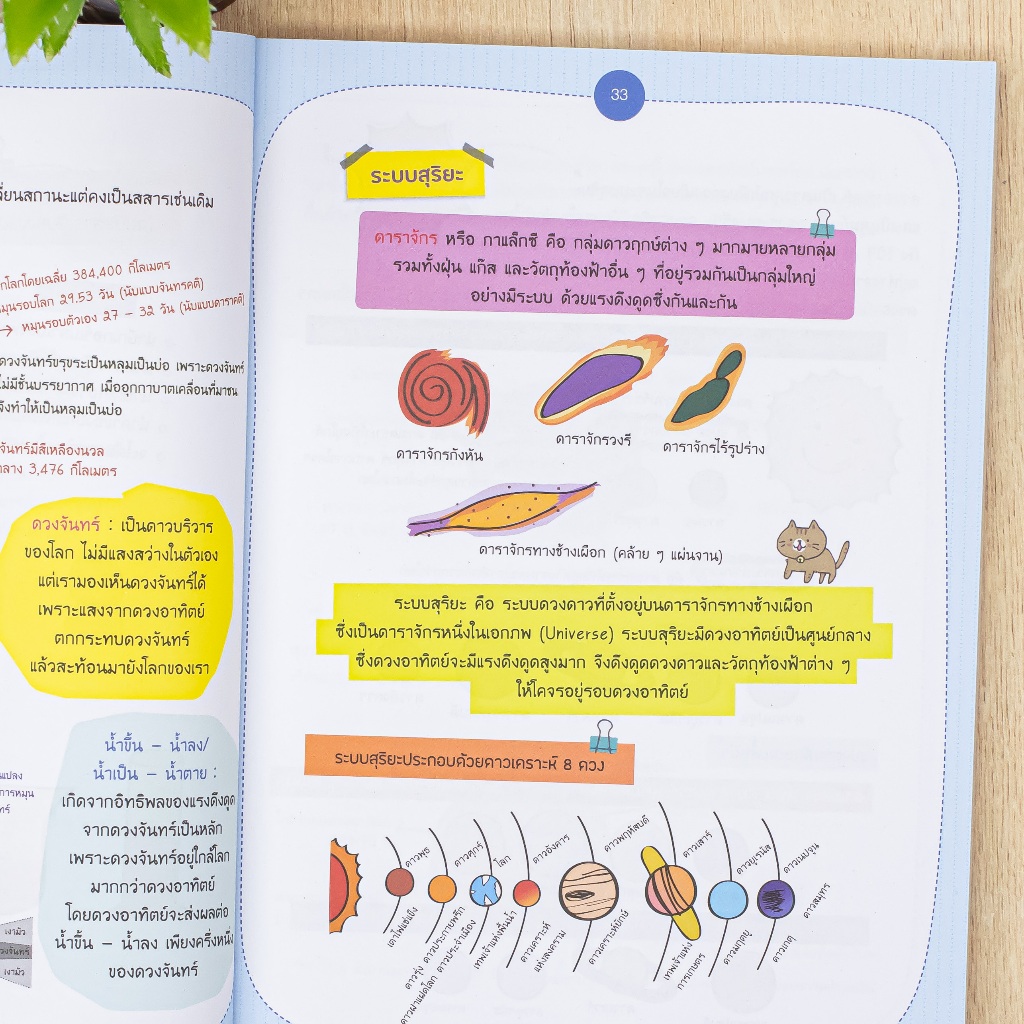 ี่ยนสถานะแต่คงเป็นสสารเช่นเดิม
กโลกโดยเฉลี่ย 384,400 กิโลเมตร
หมุนรอบโลก 29.53 วัน (นับแบบจันทรคติ)
→ หมุนรอบตัวเอง 27 – 32 วัน (นับแบบดาราคติ)
ดวงจันทร์ขรุขระเป็นหลุมเป็นบ่อ เพราะดวงจันทร์
ไม่มีชั้นบรรยากาศ เมื่ออุกกาบาตเคลื่อนที่มาชน
จึงทำให้เป็นหลุมเป็นบ่อ
จันทร์มีสีเหลืองนวล
กลาง 3,476 กิโลเมตร
ดวงจันทร์ : เป็นดาวบริวาร
ของโลก ไม่มีแสงสว่างในตัวเอง
แต่เรามองเห็นดวงจันทร์ได้
เพราะแสงจากดวงอาทิตย์
ตกกระทบดวงจันทร์
แล้วสะท้อนมายังโลกของเรา
น้ำขึ้น – น้ำลง/
น้ำเป็น – น้ำตาย :
เกิดจากอิทธิพลของแรงดึงดูด
จากดวงจันทร์เป็นหลัก
เพราะดวงจันทร์อยู่ใกล้โลก
มากกว่าดวงอาทิตย์
โดยดวงอาทิตย์จะส่งผลต่อ
น้ำขึ้น – น้ำลง เพียงครึ่งหนึ่ง
ของดวงจันทร์
แปลง
การหมุน
ทร์
เงามัว
วงจันทร์
เงามัว
33
ระบบสุริยะ
ดาราจักร หรือ กาแล็กซี คือ กลุ่มดาวฤกษ์ต่าง ๆ มากมายหลายกลุ่ม
รวมทั้งฝุ่น แก๊ส และวัตถุท้องฟ้าอื่น ๆ ที่อยู่รวมกันเป็นกลุ่มใหญ่
อย่างมีระบบ ด้วยแรงดึงดูดซึ่งกันและกัน
ดาราจักรกังหัน
ดาราจักรวงรี
ดาราจักรไร้รูปร่าง
ดาราจักรทางช้างเผือก (คล้าย ๆ แผ่นจาน)
ระบบสุริยะ คือ ระบบดวงดาวที่ตั้งอยู่บนดาราจักรทางช้างเผือก
ซึ่งเป็นดาราจักรหนึ่งในเอกภพ (Universe) ระบบสุริยะมีดวงอาทิตย์เป็นศูนย์กลาง
ซึ่งดวงอาทิตย์จะมีแรงดึงดูดสูงมาก จึงดึงดูดดวงดาวและวัตถุท้องฟ้าต่าง ๆ
ให้โคจรอยู่รอบดวงอาทิตย์
ระบบสุริยะประกอบด้วยดาวเคราะห์ 8 ดวง
ดาวพุธ
ดาวศุกร์
โลก
ดาวอังคาร
ดาวพฤหัสบดี
ดาวเสาร์
ดาวยูเรนัส
ดาวเนปจูน
เตาไฟแช่แข็ง
ดาวรุ่ง ดาวประกายพรึก
ดาวฝาแฝดโลก ดาวประจำเมือง
เทพเจ้าแห่งพื้นน้ำ
ดาวเคราะห์
แห่งสงคราม
ดาวเคราะห์ยักษ์
เทพเจ้าแห่ง
การเกษตร
ดาวมฤตยู
ดาวเกตุ
ดาวสมุทร